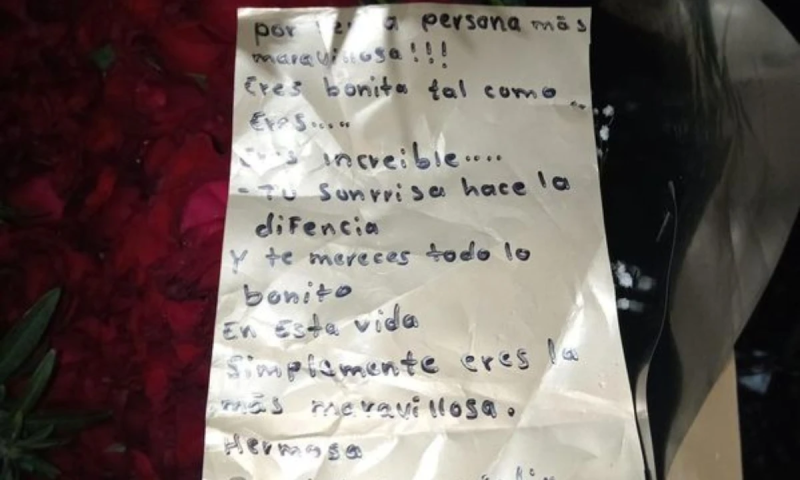 por ser la persona más
maravillosa!!!
Eres bonita tal como
Eres....
Eres increible....
- Tu sonrrisa hace la
difencia
Y te mereces todo lo
bonito
En Esta vida
Simplemente eres la
más maravillosa.
Hermosa